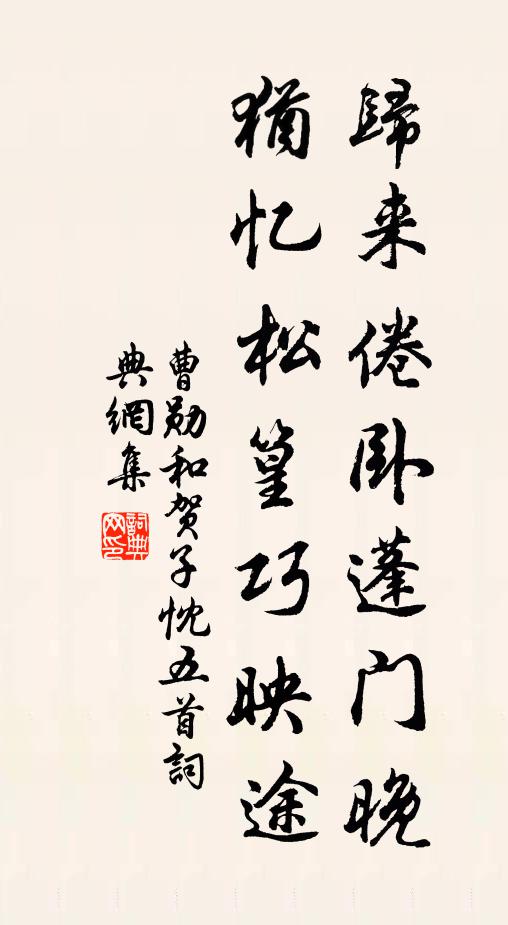 歸来倦卧蓬门晚
猶忆松篁巧映途
曹勋和贺子忱五首詞
典網集
詞典网印